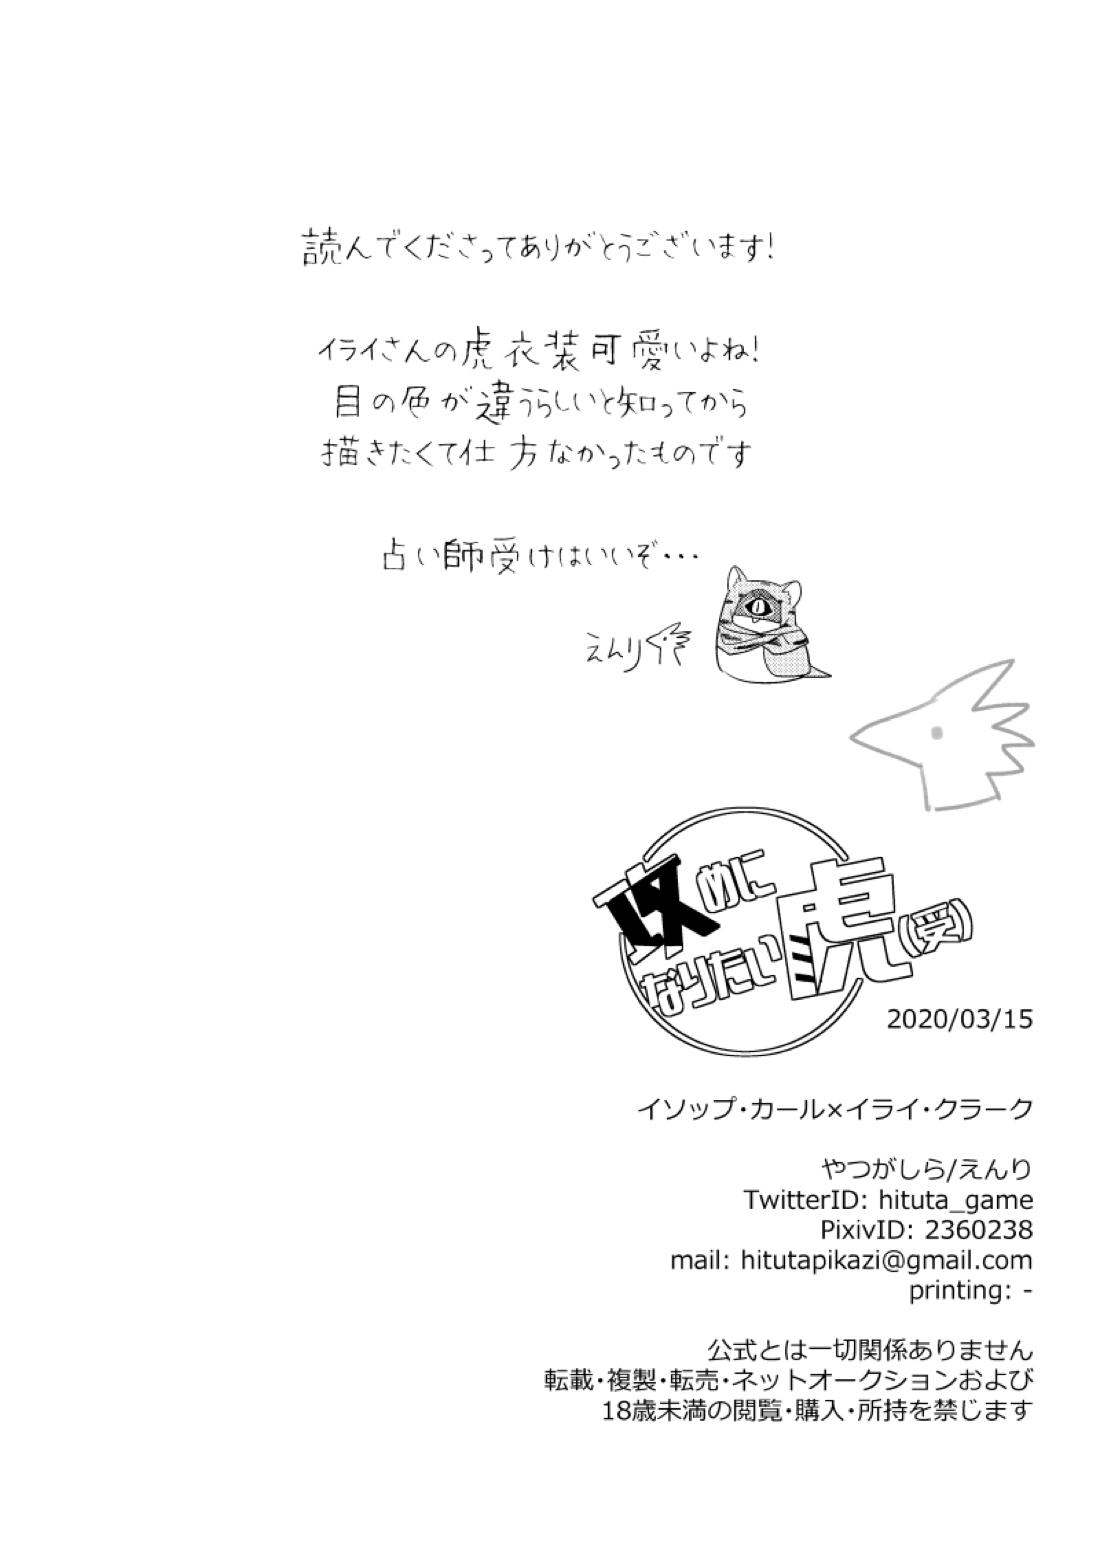 読んでくださってありがとうございます!
イライさんの虎衣装可愛いよね!
目の色が違うらしいと知ってから
描きたくて仕方なかったものです
占い師受けはいいぞ・・・
えんり
攻めに
なりたい虎(受)
2020/03/15
イソップ・カール×イライ・クラーク
やつがしら/えんり
TwitterID: hituta_game
PixivID: 2360238
mail: hitutapikazi@gmail.com
printing: -
公式とは一切関係ありません
転載・複製・転売・ネットオークションおよび
18歳未満の閲覧・購入・所持を禁じます